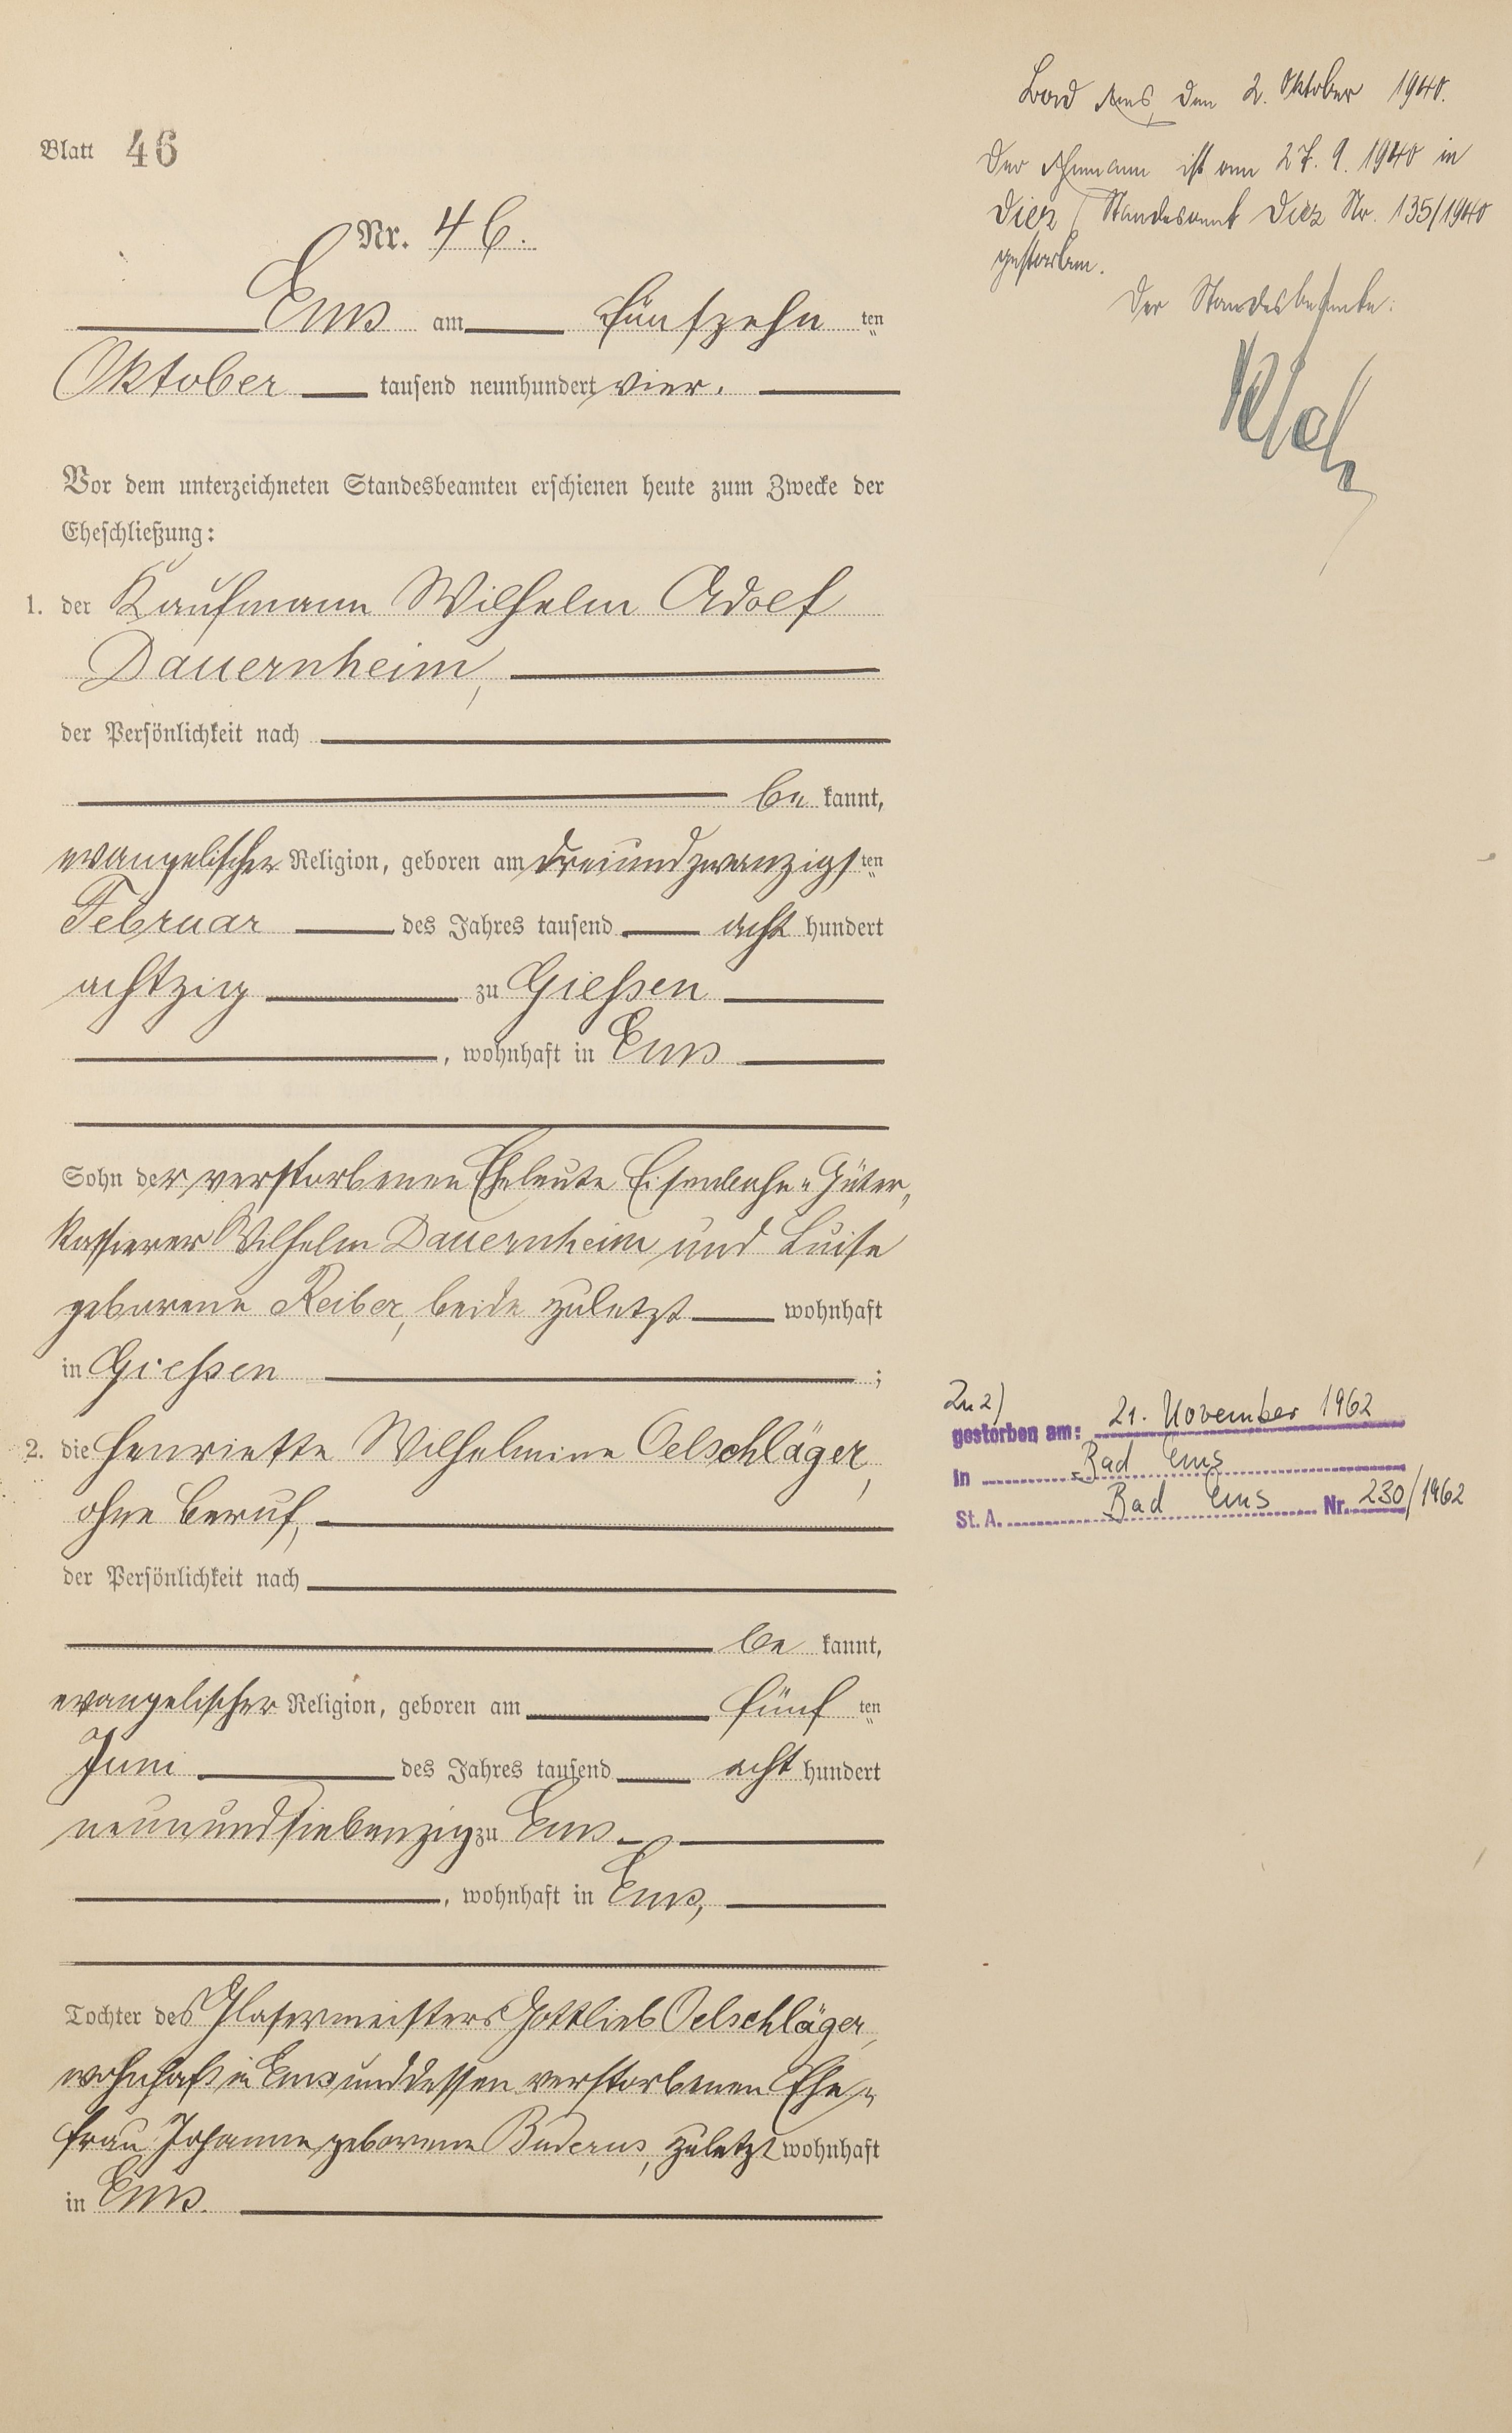 Blatt 46
Nr. 46.
Ems am fünfzehn ten
Oktober tausend neunhundert vier.
Vor dem unterzeichneten Standesbeamten erschienen heute zum Zwecke der
Eheschließung:
1. der Kaufmann Wilhelm Adolf
Dauernheim,
der Persönlichkeit nach
be kannt,
evangelischer Religion, geboren am dreiundzwanzigsten
Februar des Jahres tausend acht hundert
achtzig zu Giessen
, wohnhaft in Ems
Sohn der verstorbenen Eheleute Eisenbahn-Güter-
kassierer Wilhelm Dauernheim und Luise
geborene Reiber, beide zuletzt wohnhaft
in Giessen ;
2. die Henriette Wilhelmine Oelschläger,
ohne Beruf,
der Persönlichkeit nach
be kannt,
evangelischer Religion, geboren am fünf ten
Juni des Jahres tausend acht hundert
neunundsiebenzig zu Ems
, wohnhaft in Ems,
Tochter des Glasermeisters Gottlieb Oelschläger,
wohnhaft in Ems und dessen verstorbenen Ehe-
frau Johanna geborene Buderus, zuletzt wohnhaft
in Ems.
Bad Ems, den 2. Oktober 1940.
Der Ehemann ist am 27. 9. 1940 in
Diez (Standesamt Diez Nr. 135/1940
gestorben.
Der Standesbeamte:
Zu 2)
gestorben am: 21. November 1962
in Bad Ems
St. A. Bad Ems Nr. 230/1962